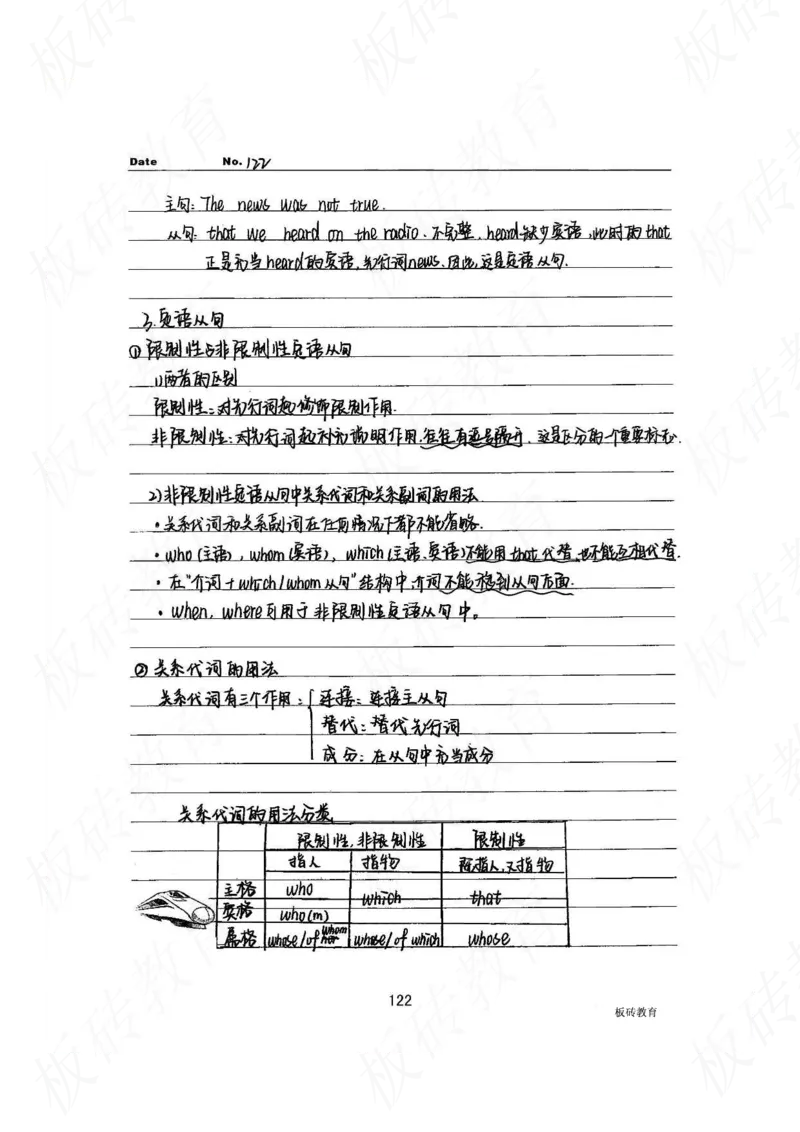 Date No. 122
主句: The news was not true.
从句: that we heard on the radio. 不完整, heard缺少宾语, 此时的that
正是充当heard的宾语, 先行词news. 因此, 这是定语从句.
3. 定语从句
① 限制性与非限制性定语从句
1) 两者的区别
限制性: 对先行词起修饰限制作用.
非限制性: 对先行词起补充说明作用. 往往有逗号隔开, 这是区分的一个重要标志.
2) 非限制性定语从句中关系代词和关系副词的用法
• 关系代词和关系副词在任何情况下都不能省略.
• who (主语), whom (宾语), which (主语、宾语) 不能用that代替, 也不能互相代替.
• 在"介词+which/whom从句"结构中介词不能移到从句后面.
• when, where可用于非限制性定语从句中。
② 关系代词的用法
关系代词有三个作用: { 连接: 连接主从句
替代: 替代先行词
成分: 在从句中充当成分
关系代词的用法分类
限制性, 非限制性 限制性
指人 指物 既指人, 又指物
主格 who which that
宾格 who(m)
属格 whose/of whom whose/of which whose
122
板砖教育